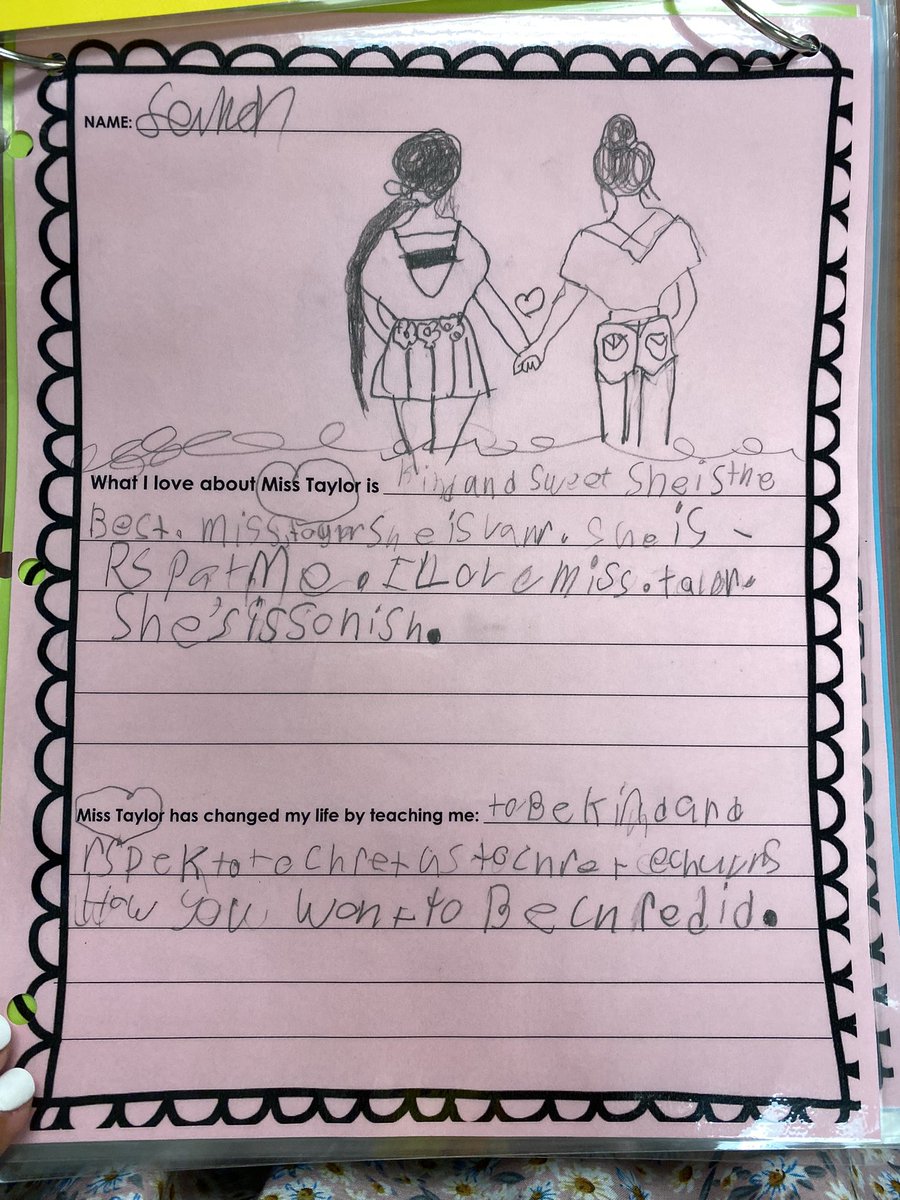 NAME:
What I love about Miss Taylor is kind and sweet She is the
Best. miss taylor She is van. She is -
RS Pat Me. I Love miss. talor.
She's is so nish.
Miss Taylor has changed my life by teaching me: to Be kind and
rspek to to chret us to chret echurs
How You Won t to Be chredid.